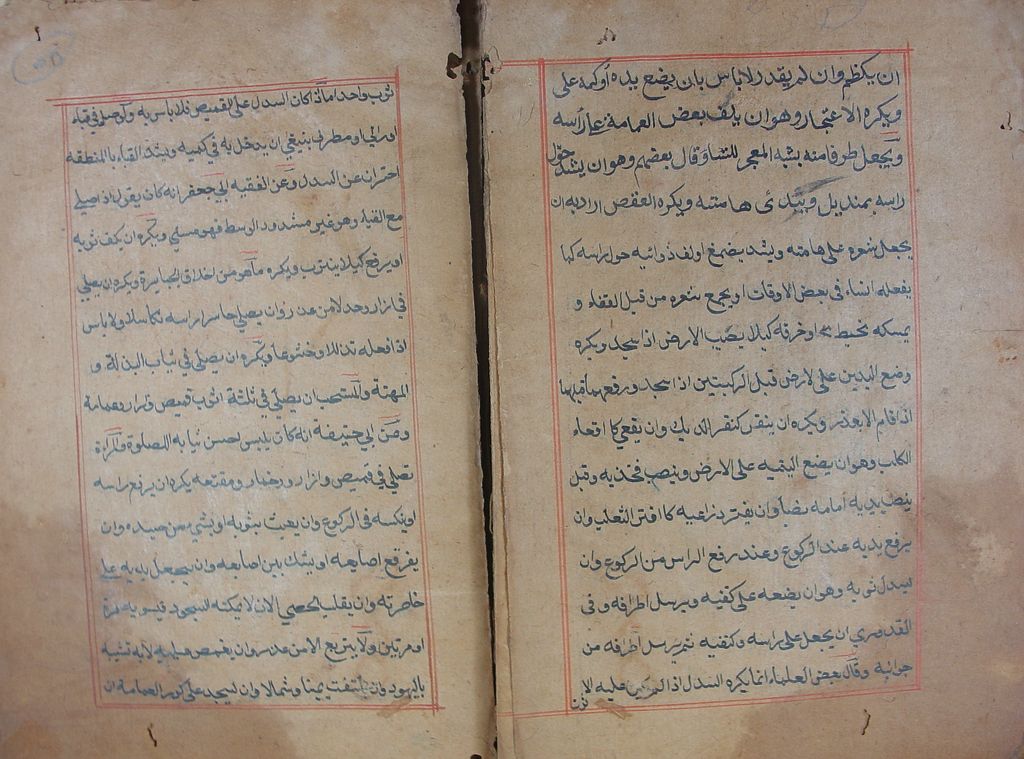 ان يكظم وان لم يقدر لاباس بان يضع يده اوكمه على
ويكره الاعتجار وهو ان يلف بعض العمامة على راسه
ويجعل طرفا منه يشبه المعجر للنساء وقال بعضهم وهو ان يشد حول
راسه بمنديل ويبدى هامته ويكره العقص اراد به ان
يجعل شعره على هامته ويشد بصمغ او لف ذوائبه حول راسه كما
يفعله النساء فى بعض الاوقات او يجمع شعره من قبل القفاء و
يمسكه بخيط او خرقه كيلا يصيب الارض اذا سجد ويكره
وضع اليدين على الارض قبل الركبتين اذا سجد ورفعهما قبلهما
اذا قام الا بعذر ويكره ان ينقر كنقر الديك وان يقعي كا اقعاء
الكلب وهو ان يضع اليتيه على الارض وينصب فخذيه وقبل
ينصب يديه امامه نصبا وان يفترش ذراعيه كا افتراش الثعلب وان
يرفع يديه عند الركوع وعند رفع الراس من الركوع وان
يسدل ثوبه وهو ان يضعه على كتفيه ويرسل اطرافه وفى
القدوري ان يجعل على راسه وكتفيه ثم يرسل اطرافه من
جوانبه وقال بعض العلماء انما يكره السدل اذا لم يكن عليه الا
ثوب واحد اما اذا كان السدل على القميص فلا باس به ولو صلى فى قباء
او مطرف ينبغي ان يدخل يديه فى كميه ويشد القباء بالمنطقه
احتراز عن السدل وعن الفقيه ابي جعفر انه كان يقول اذا صلى
مع القباء وهو غير مشدود الوسط فهو مسئ ويكره ان يكف ثوبه
او يرفع كيلا يتترب ويكره ما هو من اخلاق الجبابرة ويكره ان يصلي
فى ازار واحد الا من عذر وان يصلي حاسرا راسه تكاسلا ولا باس
اذا فعله تذللا وخشوعا ويكره ان يصلي فى ثياب البذلة و
المهنة والمستحب ان يصلي فى ثلثة اثواب قميص وازار وعمامة
وعن ابي حنيفة انه كان يلبس احسن ثيابه للصلوة والمراة
تصلي فى قميص وازار وخمار ومقنعه يكره ان يرفع راسه
او ينكسه فى الركوع وان يعبث بثوبه او بشئ من جسده وان
يفرقع اصابعه او يشبك بين اصابعه وان يجعل يديه على
خاصرته وان يقلب الحصي الا ان لا يمكنه السجود فيسويه مرة
او مرتين ولا يتربع الا من عذر وان يغمض عينيه لانه تشبيه
باليهود وان يلتفت يمينا وشمالا وان يسجد على كور العمامة ان